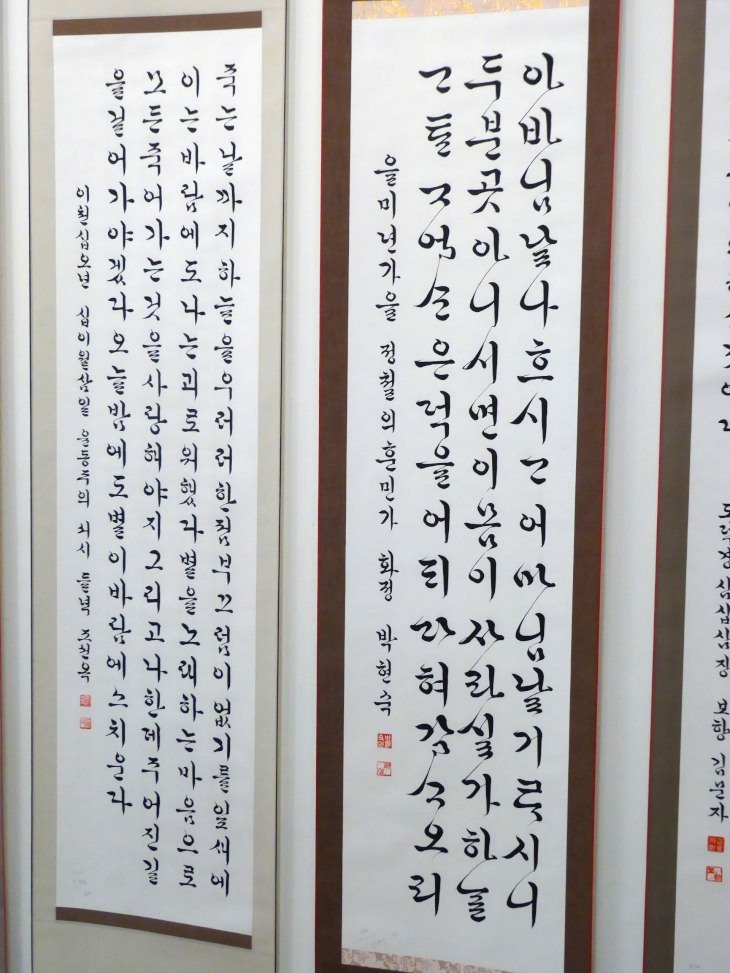 도덕경 삼십삼장 보향 김문자
아바님날나흐시고어마님날기르시니
두분곳아니시면이몸이사라실가하늘
그튼그업슨은덕을어듸다혀갑스오리
을미년가을 정철의훈민가 화정 박현숙
죽는날까지하늘을우러러한점부끄럼이없기를잎새에
이는바람에도나는괴로워했다별을노래하는마음으로
모든죽어가는것을사랑해야지그리고나한테주어진길
을걸어가야겠다오늘밤에도별이바람에스치운다
이천십오년 십이월삼일 윤동주의 서시 들녘